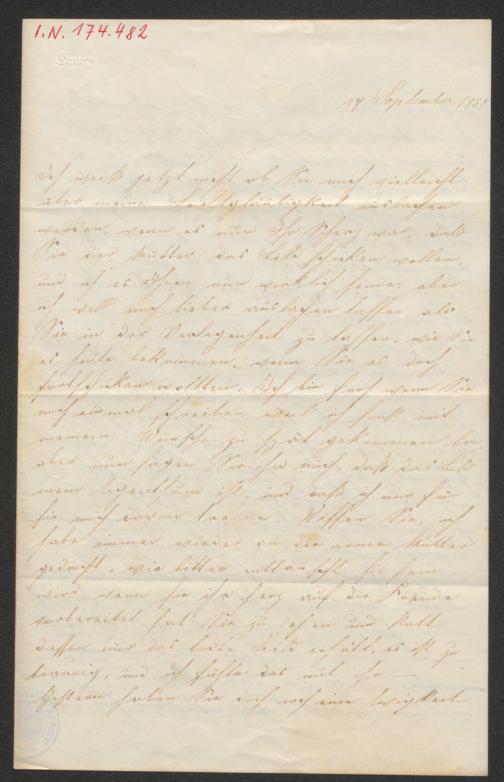 I.N. 174.482
17 September 1851
Ich weiß jetzt nicht ob Sie mich vielleicht
über meine Leichtgläubigkeit auslachen
werden, wenn es nun Ihr Scherz war, daß
Sie der Mutter das Bild schicken wollen,
und ich es Ihnen nun wirklich sende; aber
ich will mich lieber auslachen lassen als
Sie in der Verlegenheit zu lassen, wie Sie
es heute bekommen, wenn Sie es doch
fortschicken wollten. Ich bin froh wenn Sie
noch einmal schreiben weil ich sonst mit
meinem Wunsche zu spät gekommen bin
aber nun sagen Sie ihr auch, daß das Bild
mein Eigenthum ist, und daß ich nur für
sie mich davon trenne. Wissen Sie, ich
habe immer wieder an die arme Mutter
gedacht, wie bitter enttäuscht sie sein
wird, wenn sie ihr Herz auf die Freude
vorbereitet hat Sie zu sehen und statt
dessen nur das Bild erhält, es ist zu
traurig, und ich fühle das mit ihr —
Gestern haben Sie doch noch eine Ewigkeit